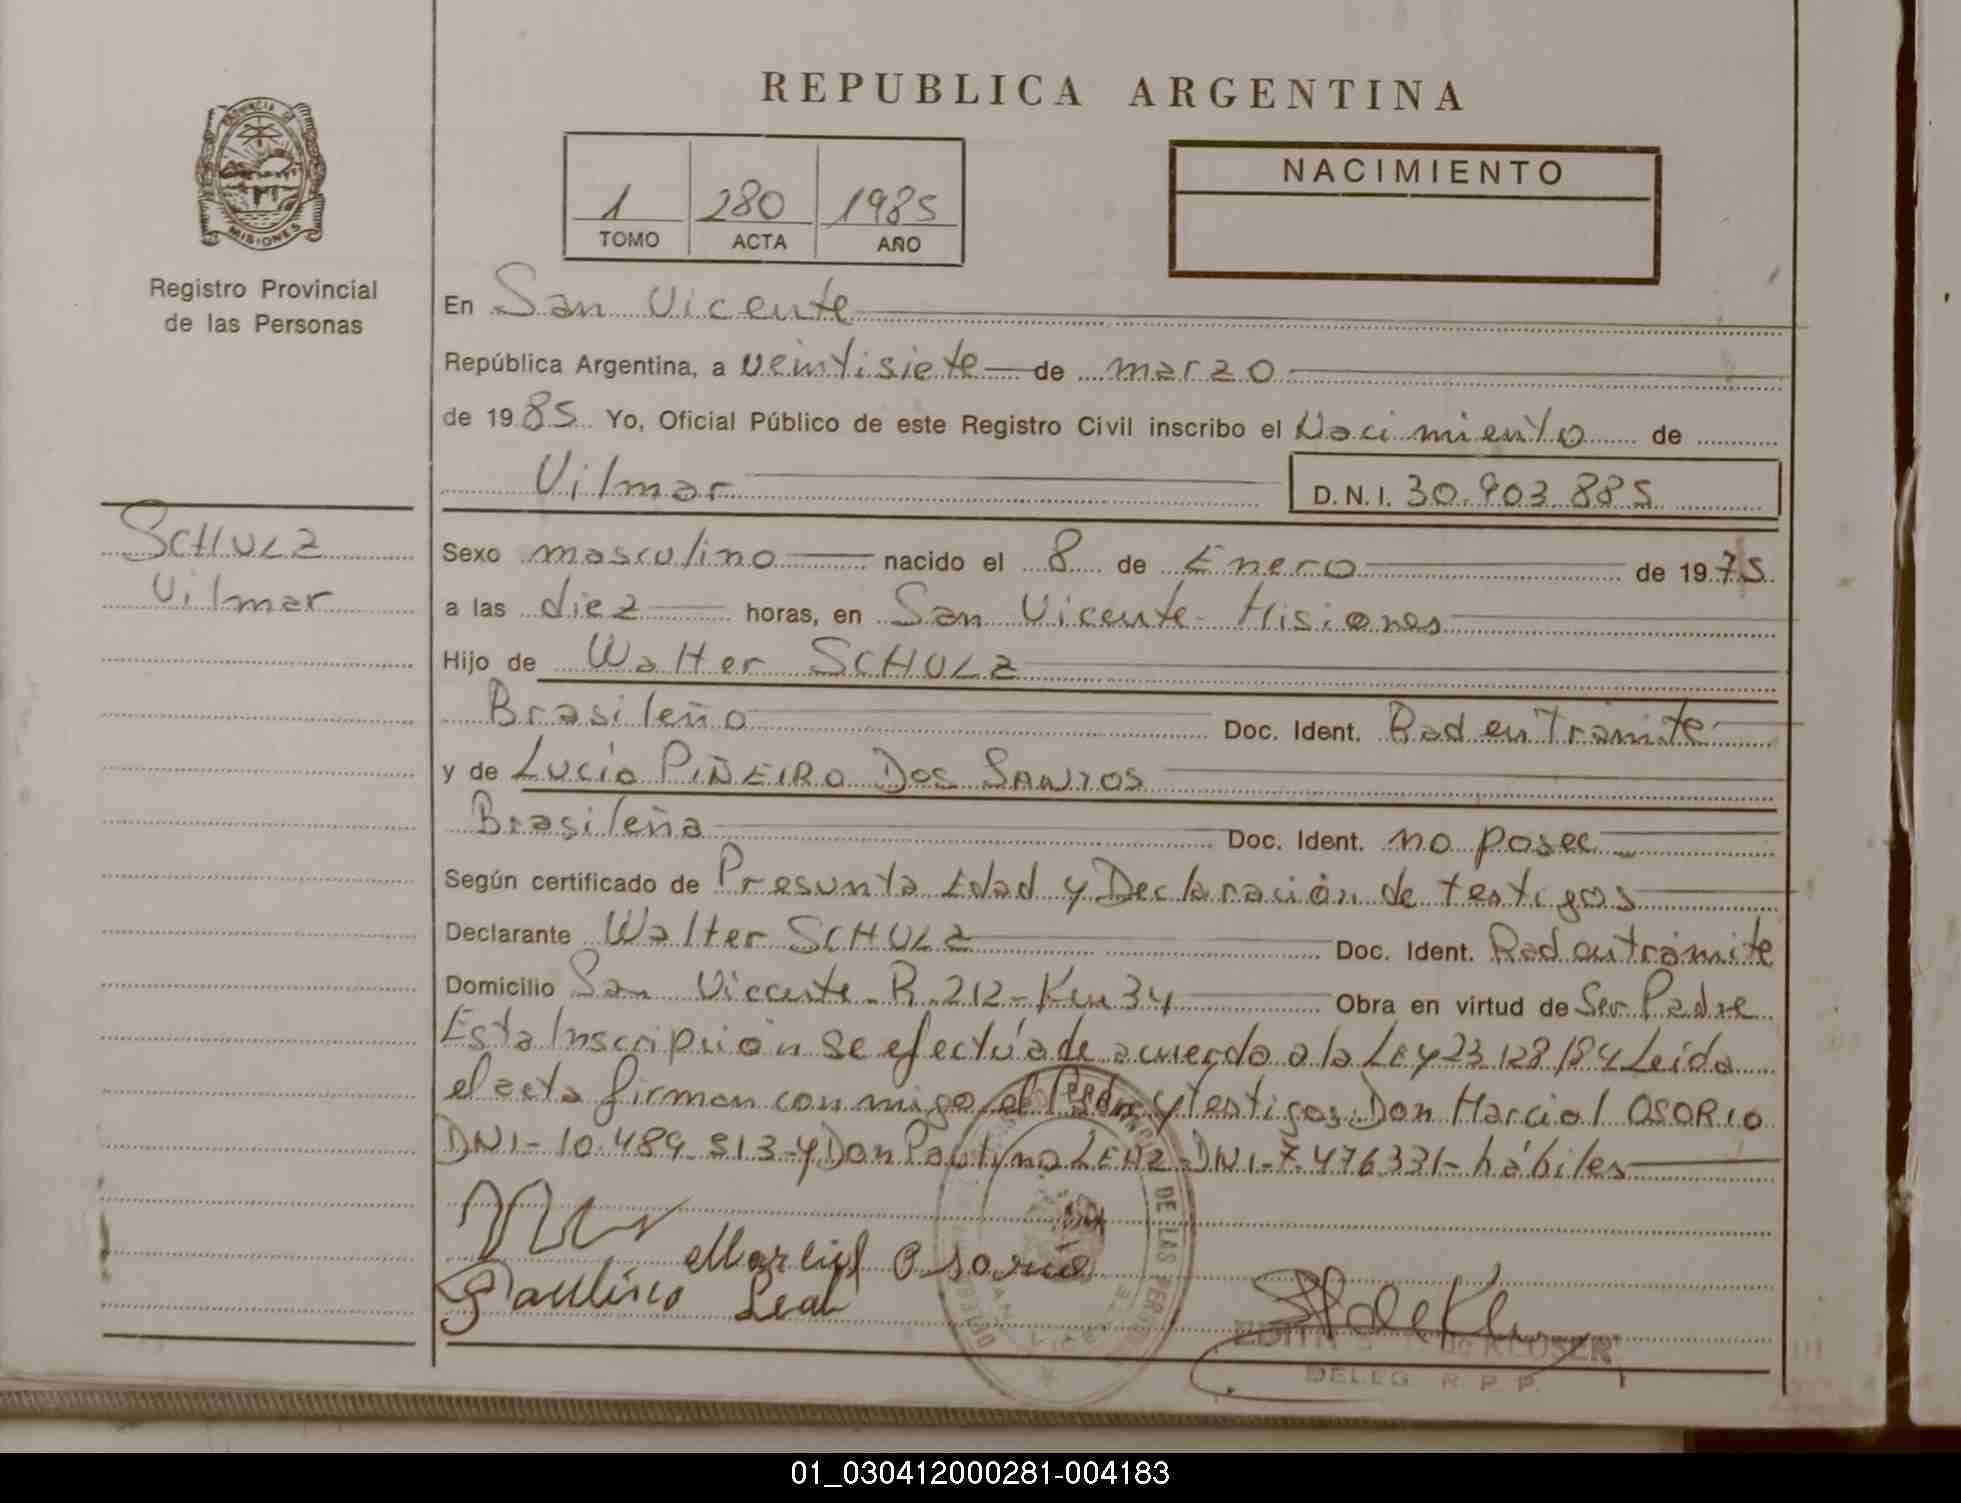 REPUBLICA ARGENTINA
1 280 1985
TOMO ACTA AÑO
NACIMIENTO
PROVINCIA DE
MISIONES
Registro Provincial
de las Personas
En San Vicente
República Argentina, a veintisiete de marzo
de 1985 Yo, Oficial Público de este Registro Civil inscribo el Nacimiento de
Vilmar D.N.I. 30.903.885
SCHULZ
Vilmar
Sexo masculino nacido el 8 de Enero de 1975
a las diez horas, en San Vicente - Misiones
Hijo de Walter SCHULZ
Brasileño Doc. Ident. Rad en Trámite
y de Lucía PIÑEIRO DOS SANTOS
Brasileña Doc. Ident. no posee
Según certificado de Presunta Edad y Declaración de testigos
Declarante Walter SCHULZ Doc. Ident. Rad en trámite
Domicilio San Vicente - R. 212 - Km 34 Obra en virtud de Ser Padre
Esta Inscripción se efectúa de acuerdo a la Ley 23.128/84 Leída
el acta firman conmigo el Padre y testigos: Don Marcial OSORIO
DNI - 10.489.813 - y Don Paulino DNI - 7.476331 - hábiles
Marcial Osorio
Paulino Leal
DE LAS PER
EDITH de KLOSER
DELEG. R. P. P.
01_030412000281-004183